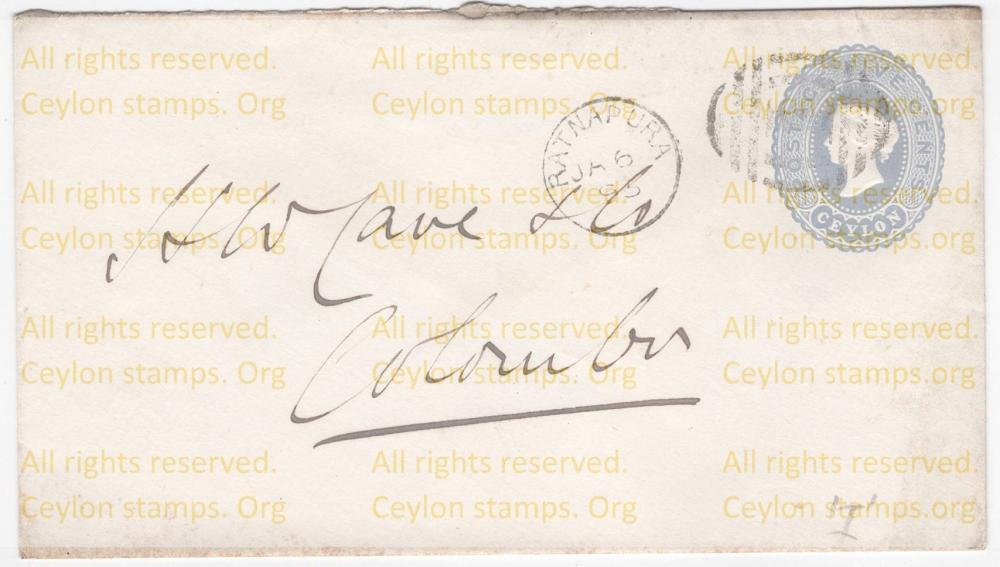 All rights reserved. All rights reserved. All rights reserved.
Ceylon stamps. Org Ceylon stamps. Org Ceylon stamps. Org
POSTAGE FIVE CENTS
CEYLON
RATNAPURA
JA 6
95
All rights reserved. All rights reserved. All rights reserved.
Ceylon stamps. Org Ceylon stamps. Org Ceylon stamps. Org
H W Cave & Co
All rights reserved. All rights reserved. All rights reserved.
Ceylon stamps. Org Ceylon stamps. Org Ceylon stamps. Org
Colombo
All rights reserved. All rights reserved. All rights reserved.
Ceylon stamps. Org Ceylon stamps. Org Ceylon stamps. Org